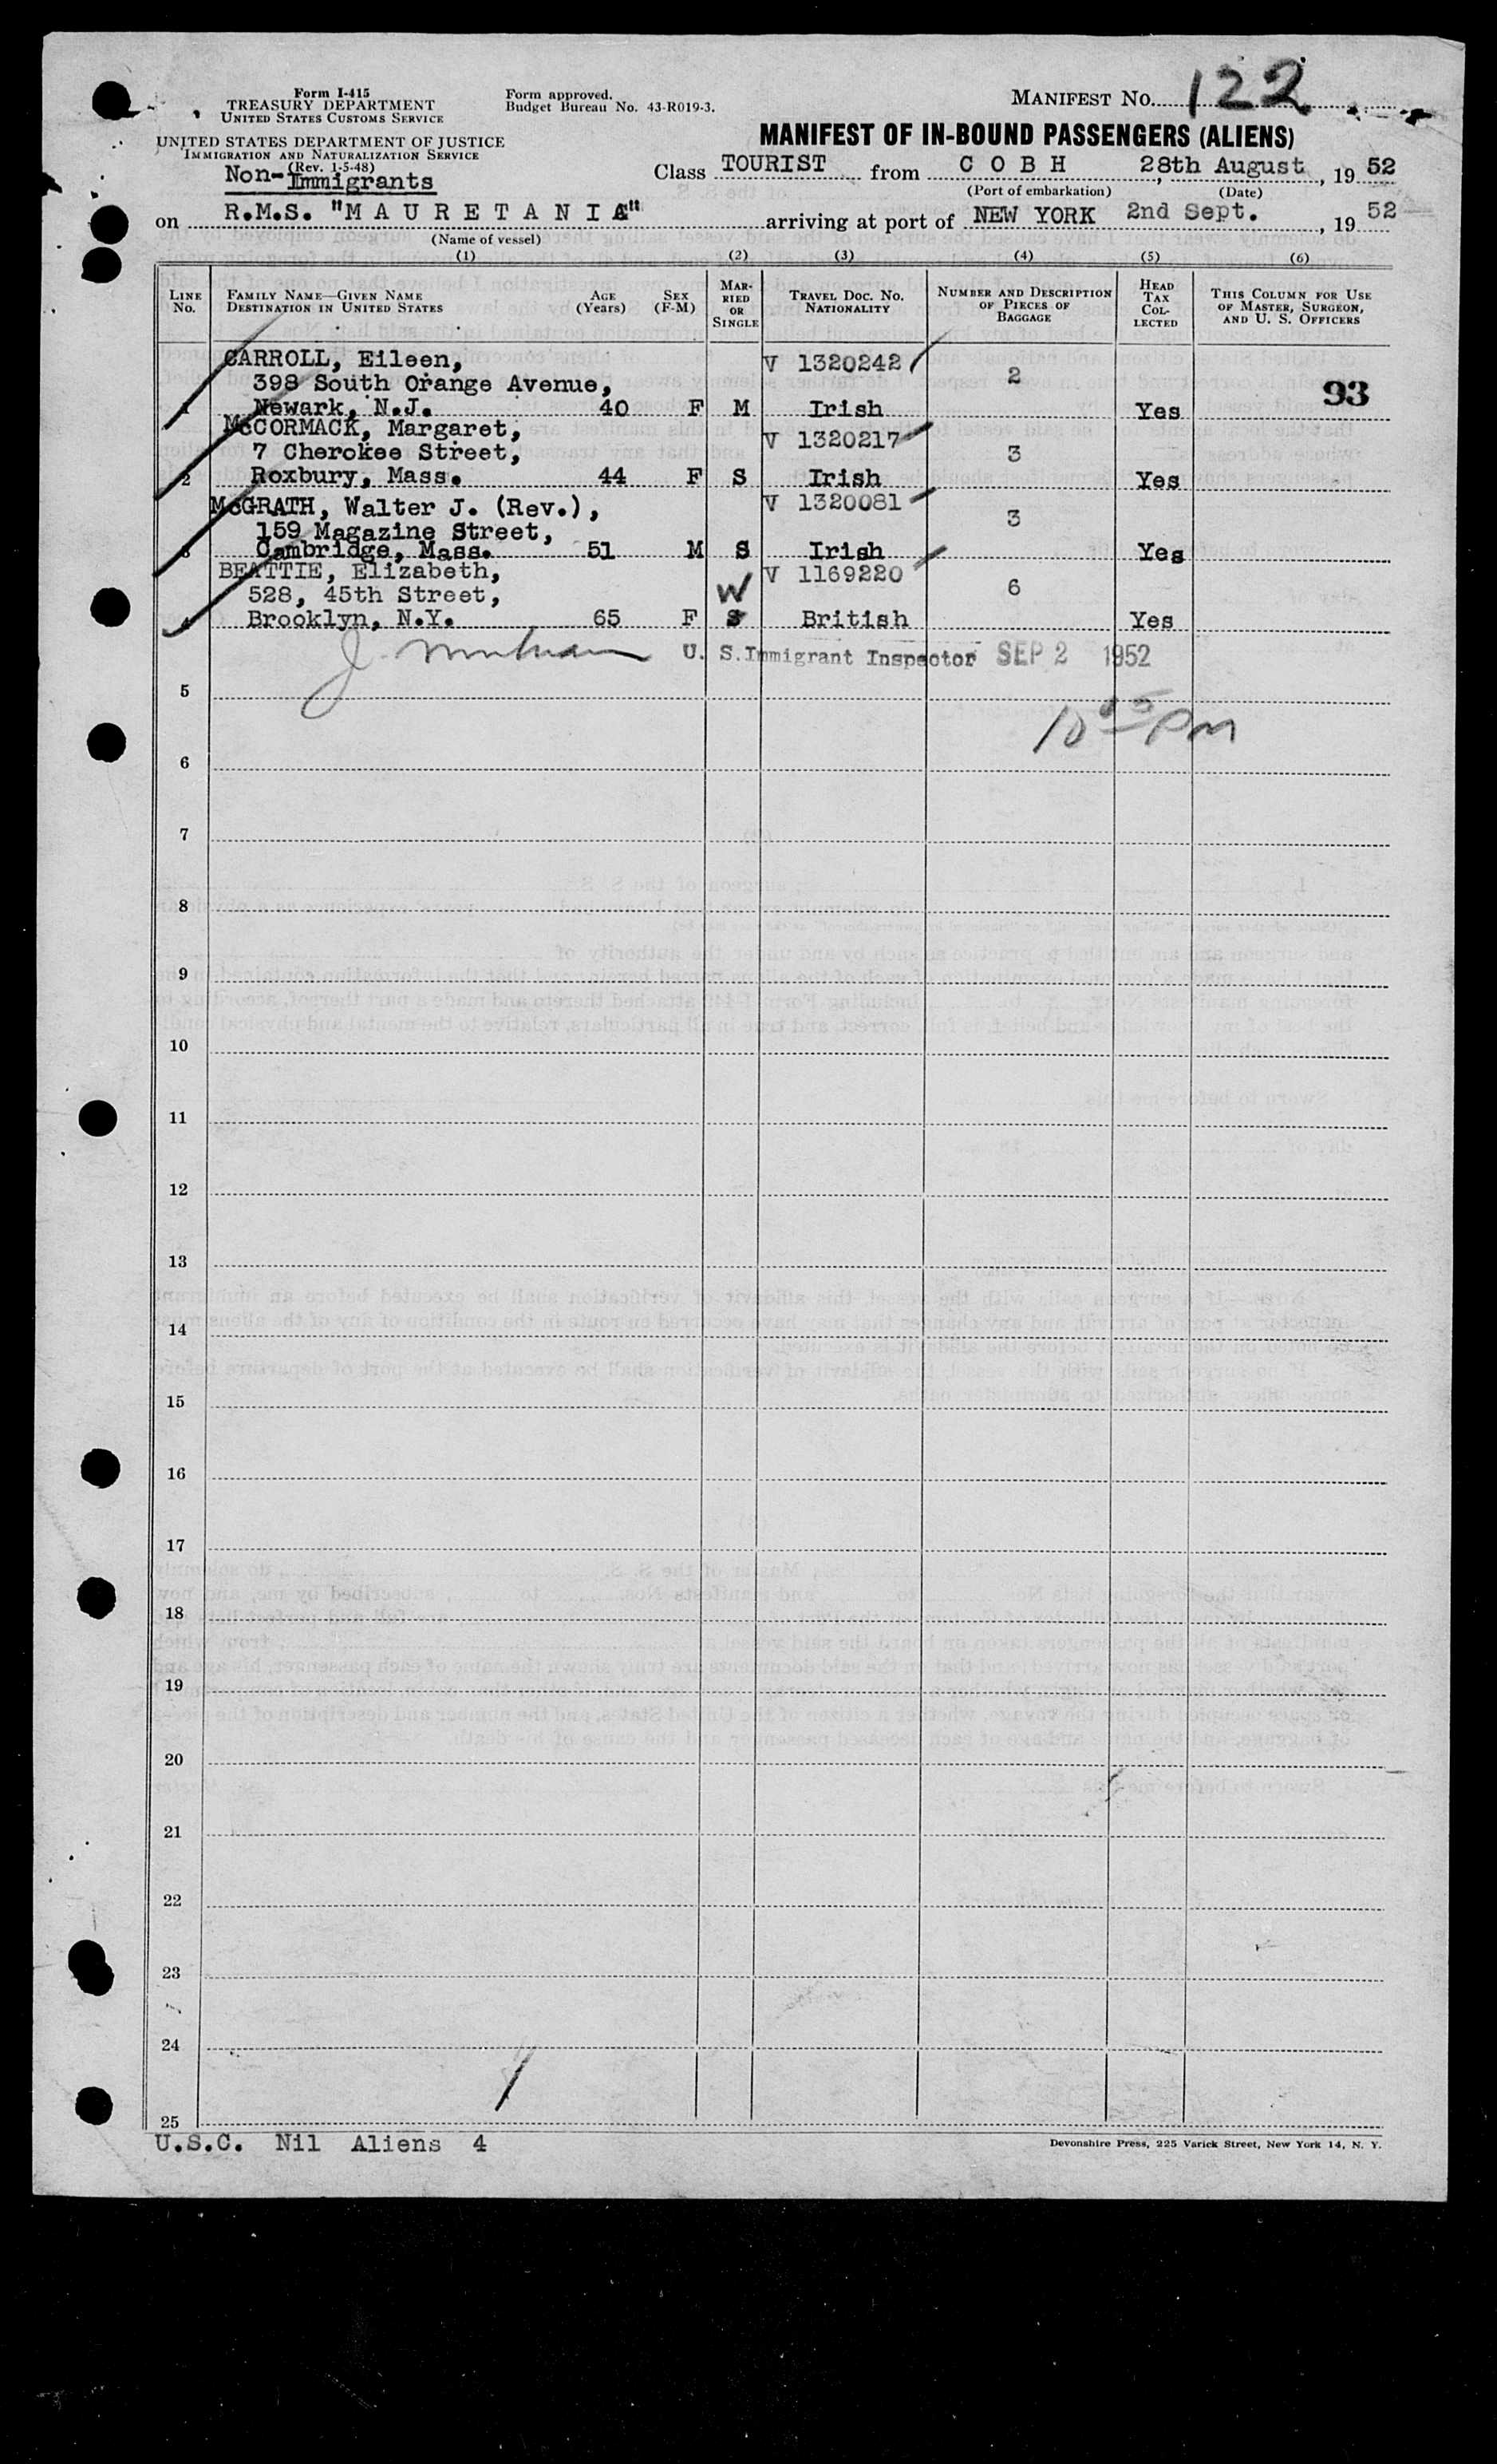 Form I-415
TREASURY DEPARTMENT
UNITED STATES CUSTOMS SERVICE
UNITED STATES DEPARTMENT OF JUSTICE
IMMIGRATION AND NATURALIZATION SERVICE
(Rev. 1-5-48)
Non-Immigrants
Form approved.
Budget Bureau No. 43-R019-3.
MANIFEST No. 122
MANIFEST OF IN-BOUND PASSENGERS (ALIENS)
Class TOURIST from COBH 28th August, 1952
(Port of embarkation) (Date)
on R.M.S. "MAURETANIA" arriving at port of NEW YORK 2nd Sept., 1952
(Name of vessel)
(1) (2) (3) (4) (5) (6)
LINE No. FAMILY NAME—GIVEN NAME DESTINATION IN UNITED STATES AGE (Years) SEX (F-M) MARRIED OR SINGLE TRAVEL DOC. NO. NATIONALITY NUMBER AND DESCRIPTION OF PIECES OF BAGGAGE HEAD TAX COLLECTED THIS COLUMN FOR USE OF MASTER, SURGEON, AND U. S. OFFICERS
CARROLL, Eileen, V 1320242
398 South Orange Avenue, 2 93
1 Newark, N.J. 40 F M Irish Yes
McCORMACK, Margaret, V 1320217
7 Cherokee Street, 3
2 Roxbury, Mass. 44 F S Irish Yes
McGRATH, Walter J. (Rev.), V 1320081
159 Magazine Street, 3
3 Cambridge, Mass. 51 M S Irish Yes
BEATTIE, Elizabeth, V 1169220
528, 45th Street, W 6
4 Brooklyn, N.Y. 65 F S British Yes
U. S. Immigrant Inspector SEP 2 1952
5
PM
6
7
8
9
10
11
12
13
14
15
16
17
18
19
20
21
22
23
24
25
U.S.C. Nil Aliens 4
Devonshire Press, 225 Varick Street, New York 14, N. Y.